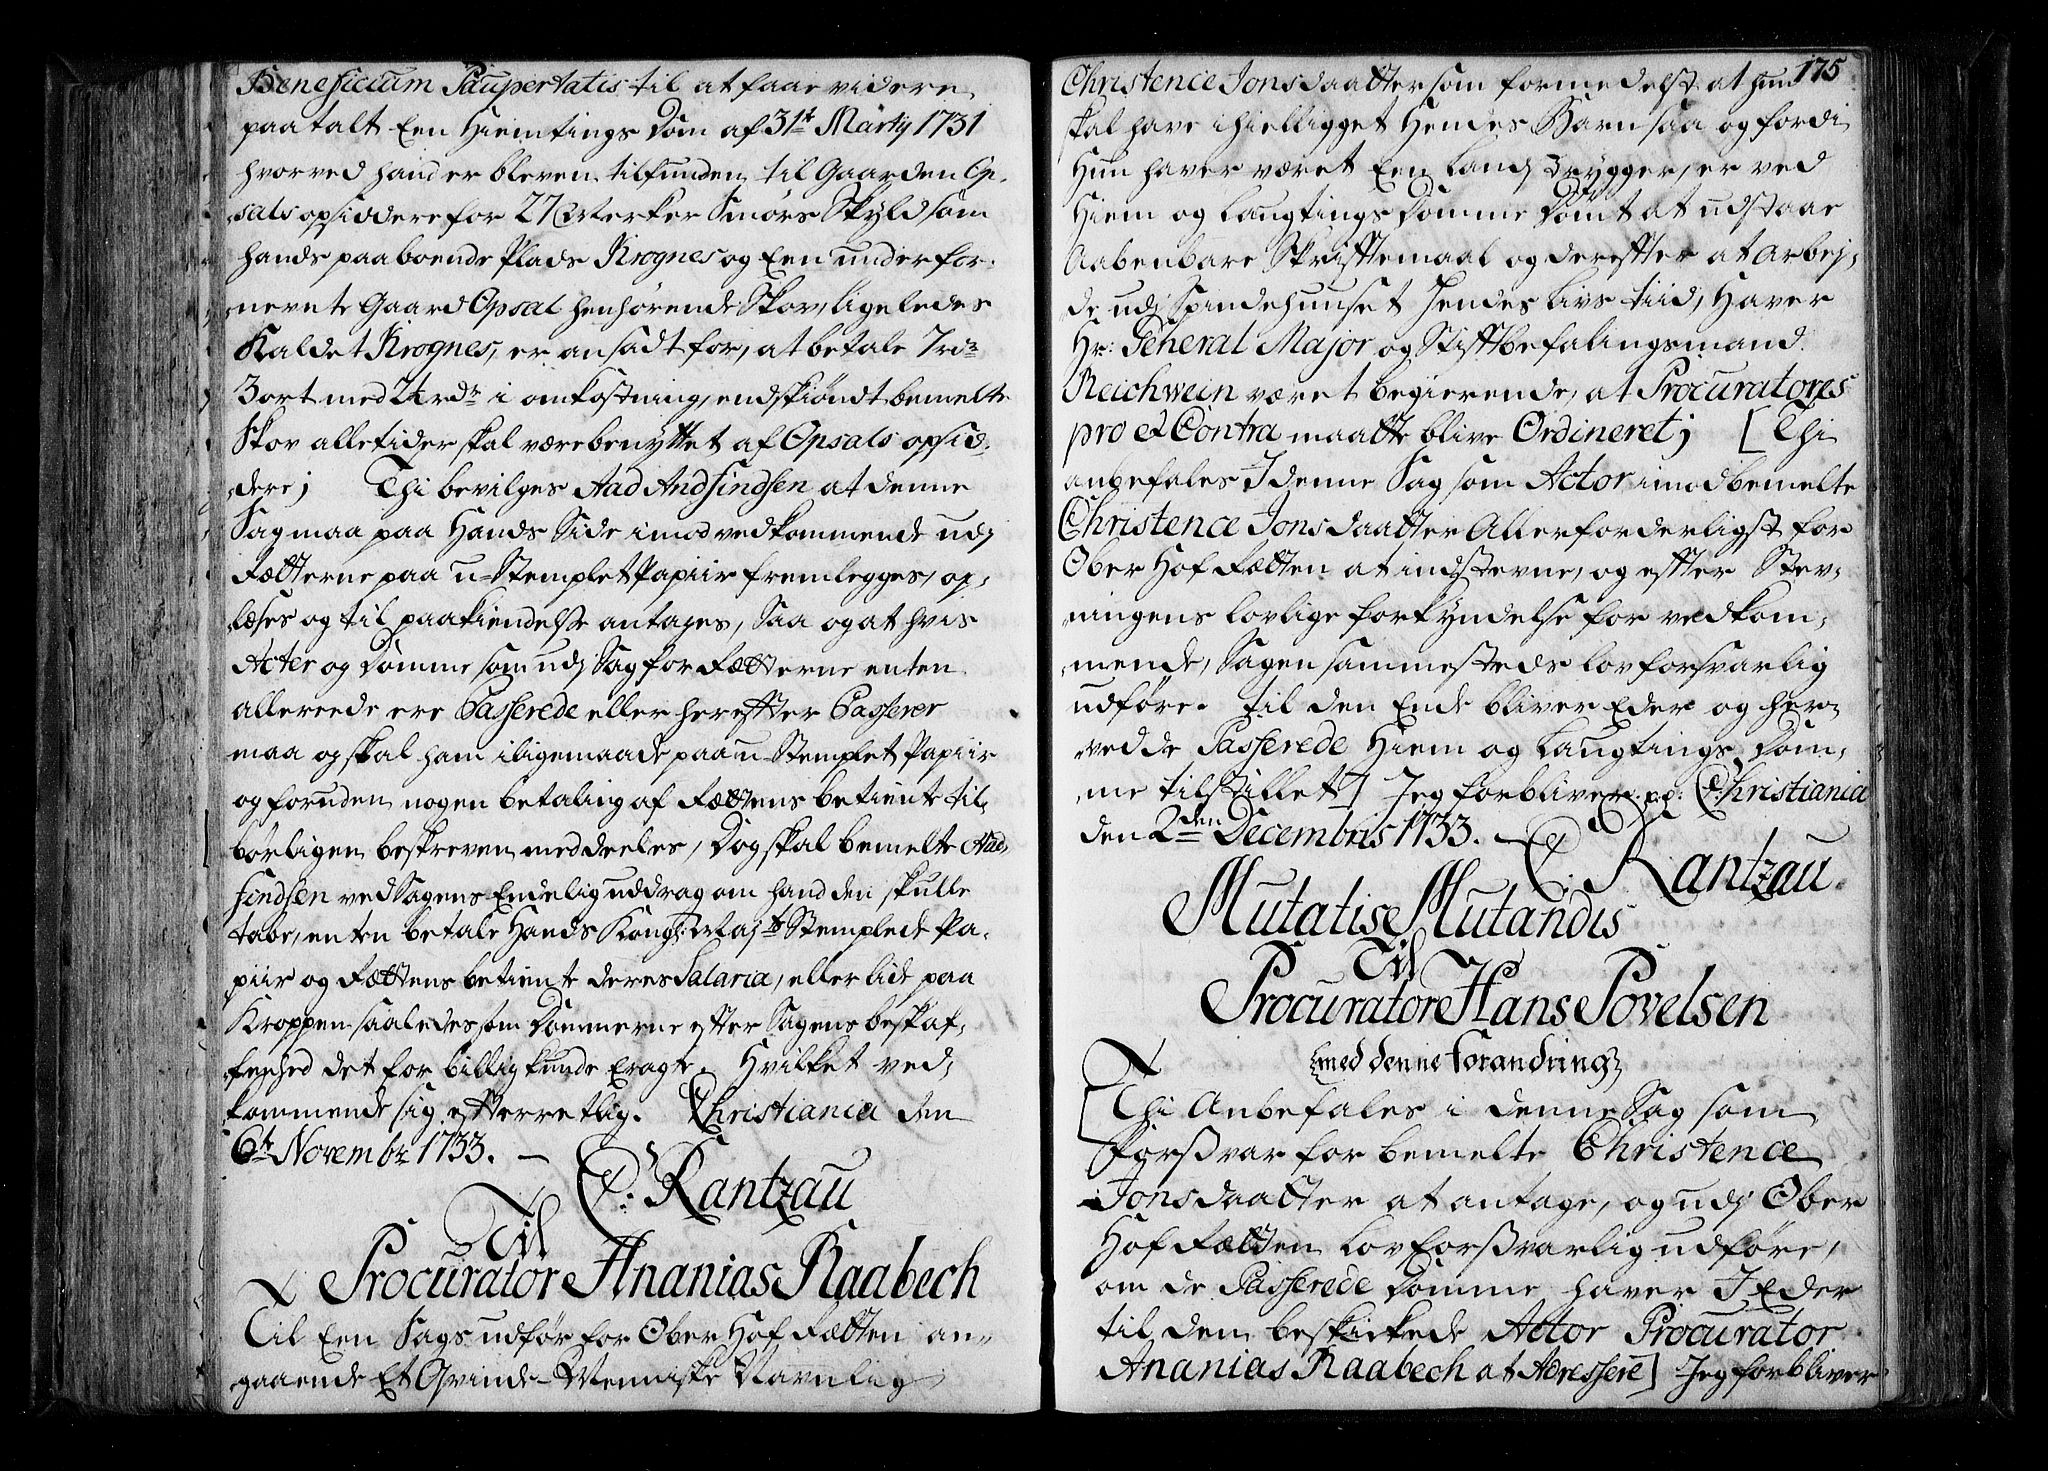 Beneficium Paupertatis til at faae videre
paatalt Een Hiemtings Dom af 31t Martij 1731
hvorved hand er bleven tilfunden til Gaarden Op-
sals opsiddere for 27 Merker Smørs Skyld som
hands paaboende Plads Krognes og Een under for-
nevnte Gaard Opsal henhørende Skov, ligeledes
Kaldet Krognes, er ansadt for, at betale 7 rdr
3 ort med 2½ rdr i omkostning, endskiøndt bemelte
Skov alletider skal være benyttet af Opsals opsid-
dere; Thi bevilges Aad Andfindsen at denne
Sag maa paa Hands Side imod vedkommende udj
Rætterne paa u-Stemplet Papiir fremlegges, op-
læses og til paakiendelse antages, Saa og at hvis
Acter og Domme som udj Sag for Rætterne enten
allereede ere Passerede eller herefter Passerer
maa og skal ham iligemaade paa u-Stemplet Papiir
og foruden nogen betaling af Rættens betiente til-
børligen beskreven meddeeles, Dog skal bemelte Aad-
findsen ved Sagens Endelig uddrag om hand den skulle
tabe, enten betale Hands Kongl: Majts Stemplede Pa-
piir og Rættens betiente deres Salaria, eller lide paa
Kroppen saaledes som Dommerne efter Sagens beskaf-
fenhed det for billig kunde eragte. Hvilket ved-
kommende sig efterretlig. Christiania den
6te Novembr 1733. —
C: Rantzau
Til
Procurator Ananias Raabech
Til Een Sags udfør for Ober Hof Rætten an-
gaaende Et Qvinde-Menniske Navnlig
175
Christence Jonsdaatter som formedelst at hun
skal have ihielligget Hendes Barn saa og fordi
Hun haver været Een Landstrygger, er ved
Hiem og Laugtings Domme Dømt at udstaae
Aabenbare Skriftemaal og derefter at arbej-
de udj Spindehuuset Hendes livs tiid, Haver
Hr: General Major og Stiftbefalingsmand
Reichwein været begierende, at Procuratores
pro et Contra maatte blive Ordineret; [Thi
anbefales I denne Sag som Actor imod bemelte
Christence Jonsdaatter Allerforderligst for
Ober Hof Rætten at indstevne, og efter Stev-
ningens lovlige forkyndelse for vedkom-
mende, Sagen sammesteds lovforsvarlig
udføre. til den Ende bliver Eder og her-
ved de Passerede Hiem og Laugtings Dom-
me tilstillet] Jeg forbliver p.p: Christiania
den 2den Decembris 1733. —
C: Rantzau.
Mutatis Mutandis
Til
Procurator Hans Povelsen
med denne forandring
[Thi Anbefales i denne Sag som
Forsvar for bemelte Christence
Jonsdaatter at antage, og udj Ober
Hof Rætten lovforsvarlig udføre,
om de Passerede Domme haver I Eder
til den beskikede Actor Procurator
Ananias Raabech at Adressere] Jeg forbliver